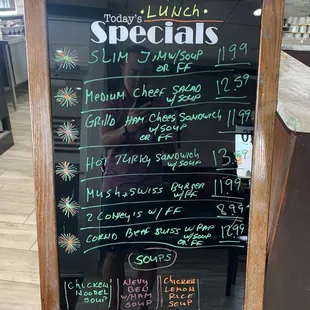 LUNCH
Today's
Specials
SLIM JIM W/SOUP 11.99
OR FF
MEDIUM CHEEF SALAD 12.59
W/SOUP
GRILLD HAM CHEES SANDWICH 11.99
W/SOUP
OR FF
HOT TURKY SANDWICH 13.59
W/SOUP
MUSH + SWISS BURGER 11.99
W/FF
2 CONEY'S W/ FF 8.99
CORND BEEF SWISS W RAP 12.99
W/SOUP
OR FF
SOUPS
CHICKEN
NOODEL
SOUP
NEVY
BEL
W/HAM
SOUP
CHICKEN
LEMON
RICE
SOUP